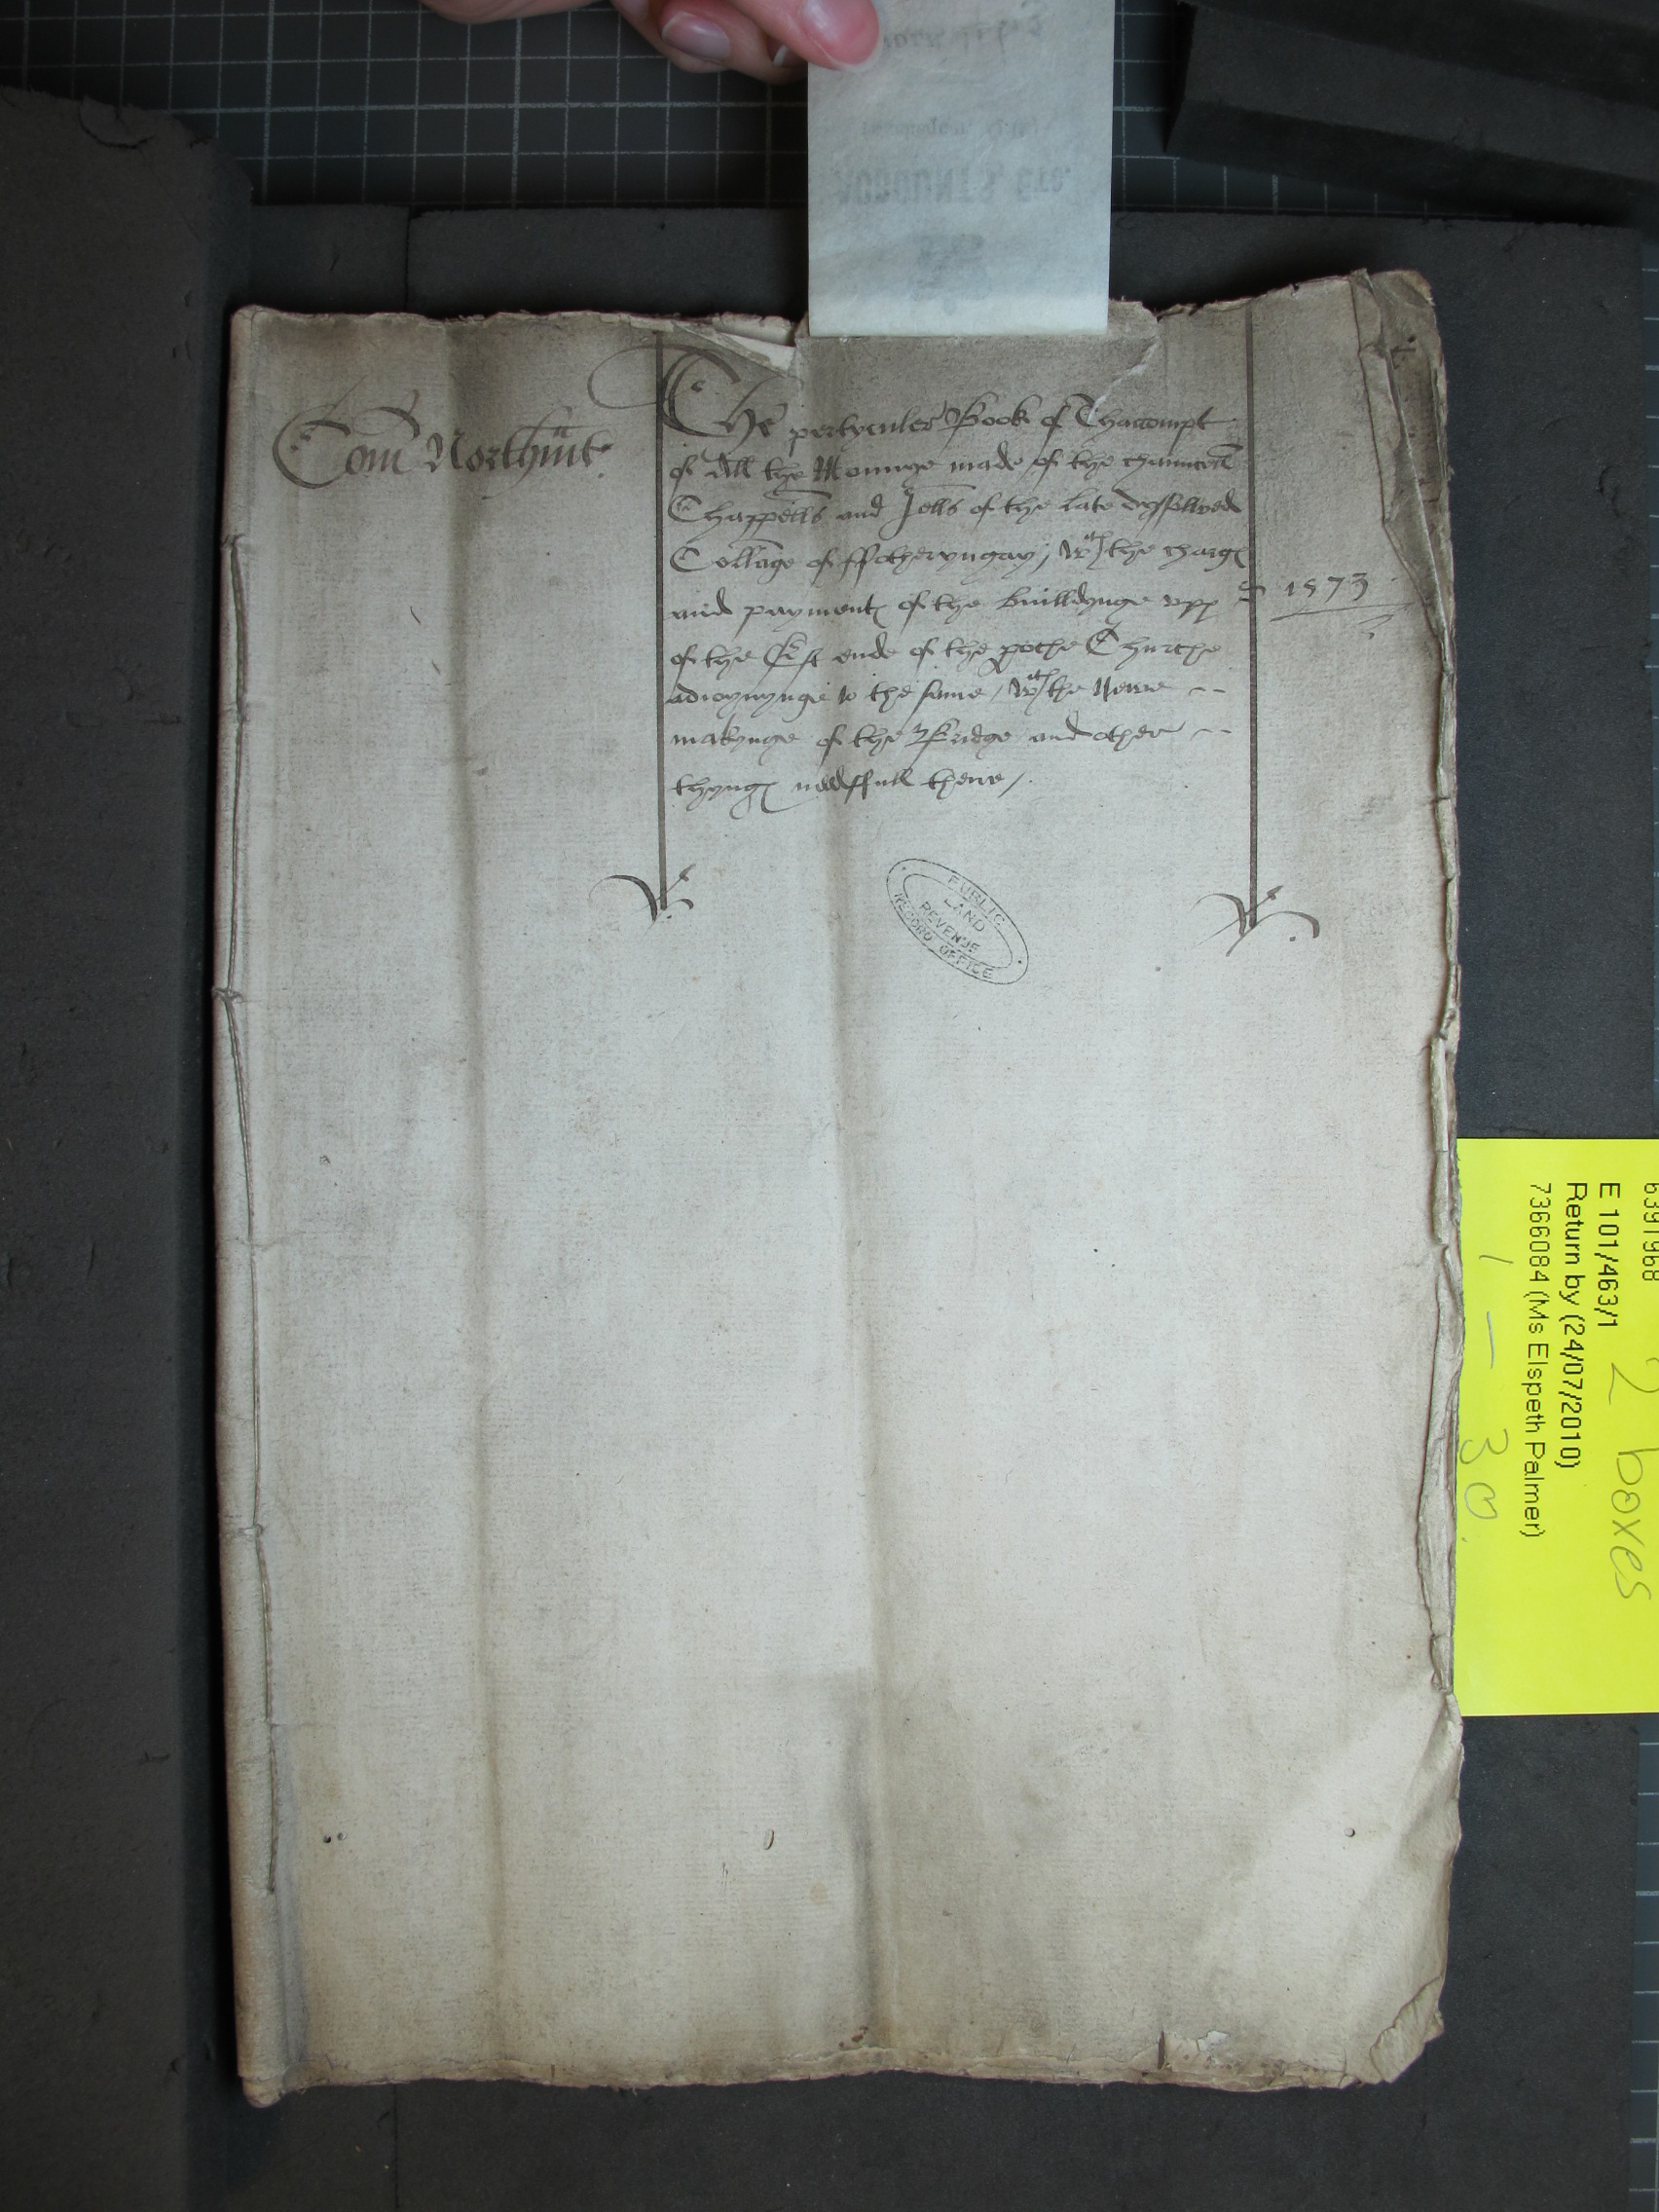 Com Northmt
The pertyculer Book of Thaccompt
of All the Monnye made of the chauncell
Chappells and Iells of the late dyssolved
Collage of ffotheryngay, wth the charges
and payments of the buildynge upp
of the Est ende of the poche Churche
adioynynge to the same, wth the Newe --
makynge of the Bridge and other --
thyngs nedffull there,.
1573
PUBLIC
LAND
REVENUE
RECORD OFFICE
ACCOUNTS, ETC.
6391968
E 101/463/1
Return by (24/07/2010)
7366084 (Ms Elspeth Palmer)
2 boxes
1 — 30.